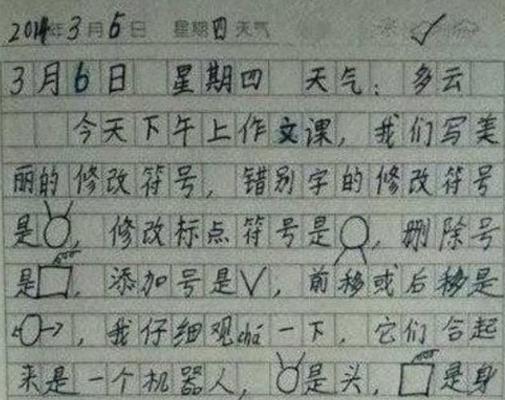 2014年3月6日 星期四 天气
3月6日 星期四 天气：多云
今天下午上作文课，我们写美
丽的修改符号，错别字的修改符号
是，修改标点符号是，删除号
是，添加号是∨，前移或后移是
，我仔细观chá一下，它们合起
来是一个机器人，是头，是身